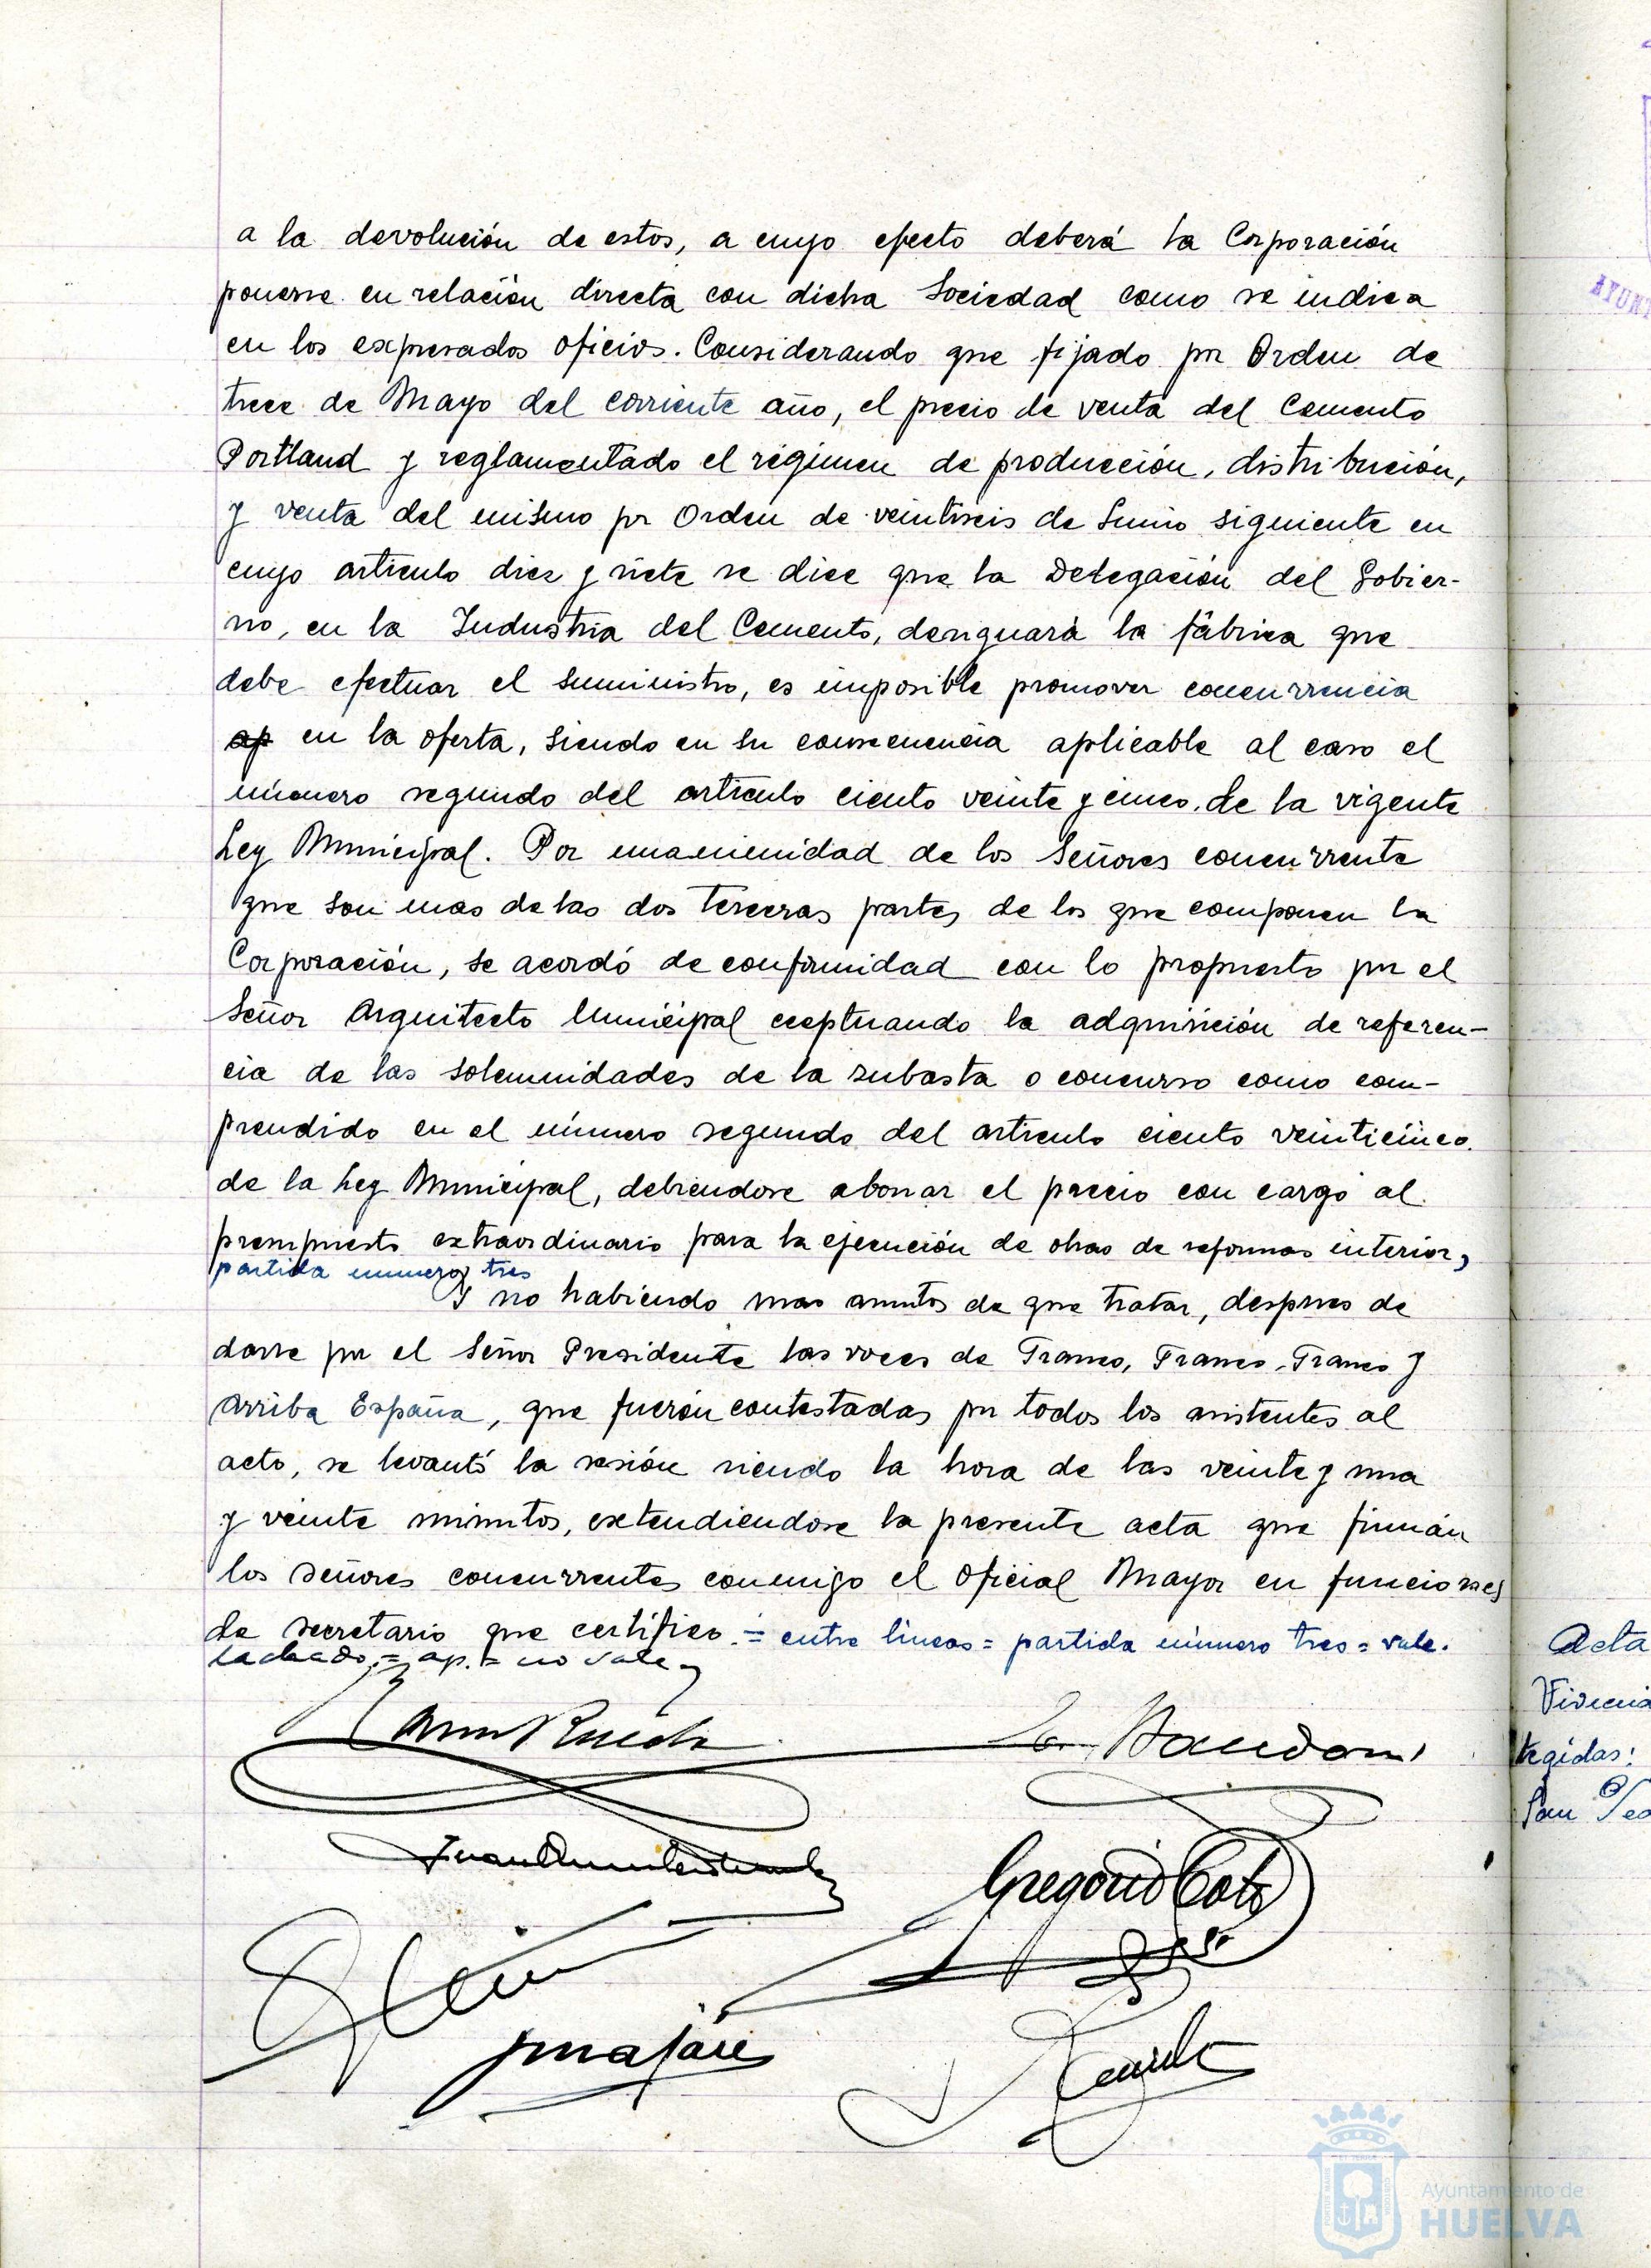 a la devolución de estos, a cuyo efecto deberá la Corporación
ponerse en relación directa con dicha Sociedad como se indica
en los expresados oficios. Considerando que fijado por Orden de
trece de Mayo del corriente año, el precio de venta del Cemento
Portland y reglamentado el régimen de producción, distribución,
y venta del mismo por Orden de veintiseis de Junio siguiente en
cuyo articulo diez y siete se dice que la Delegación del Gobier-
no, en la Industria del Cemento, designará la fábrica que
debe efectuar el suministro, es imposible promover concurrencia
ap en la oferta, siendo en su consecuencia aplicable al caso el
número segundo del articulo ciento veinte y cinco de la vigente
Ley Municipal. Por unanimidad de los Señores concurrente
que son mas de las dos terceras partes de los que componen la
Corporación, se acordó de conformidad con lo propuesto por el
Señor Arquitecto Municipal exeptuando la adquisición de referen-
cia de las solemnidades de la subasta o concurso como com-
prendido en el número segundo del articulo ciento veinticinco
de la Ley Municipal, debiendose abonar el precio con cargo al
presupuesto extraordinario para la ejecución de obras de reformas interior,
partida numero tres
Y no habiendo mas asuntos de que tratar, despues de
darse por el Señor Presidente las voces de Franco, Franco, Franco y
Arriba España, que fuerón contestadas por todos los asistentes al
acto, se levantó la sesión siendo la hora de las veinte y una
y veinte minutos, extendiendose la presente acta que firmán
los señores concurrentes conmigo el Oficial Mayor en funciones
de secretario que certifico. = entre lineas = partida número tres = vale.
tachado = ap. = no vale
Gregorio Coto
Acta
Viviend
tegidas:
San Pe
AYUNT
Ayuntamiento de
HUELVA